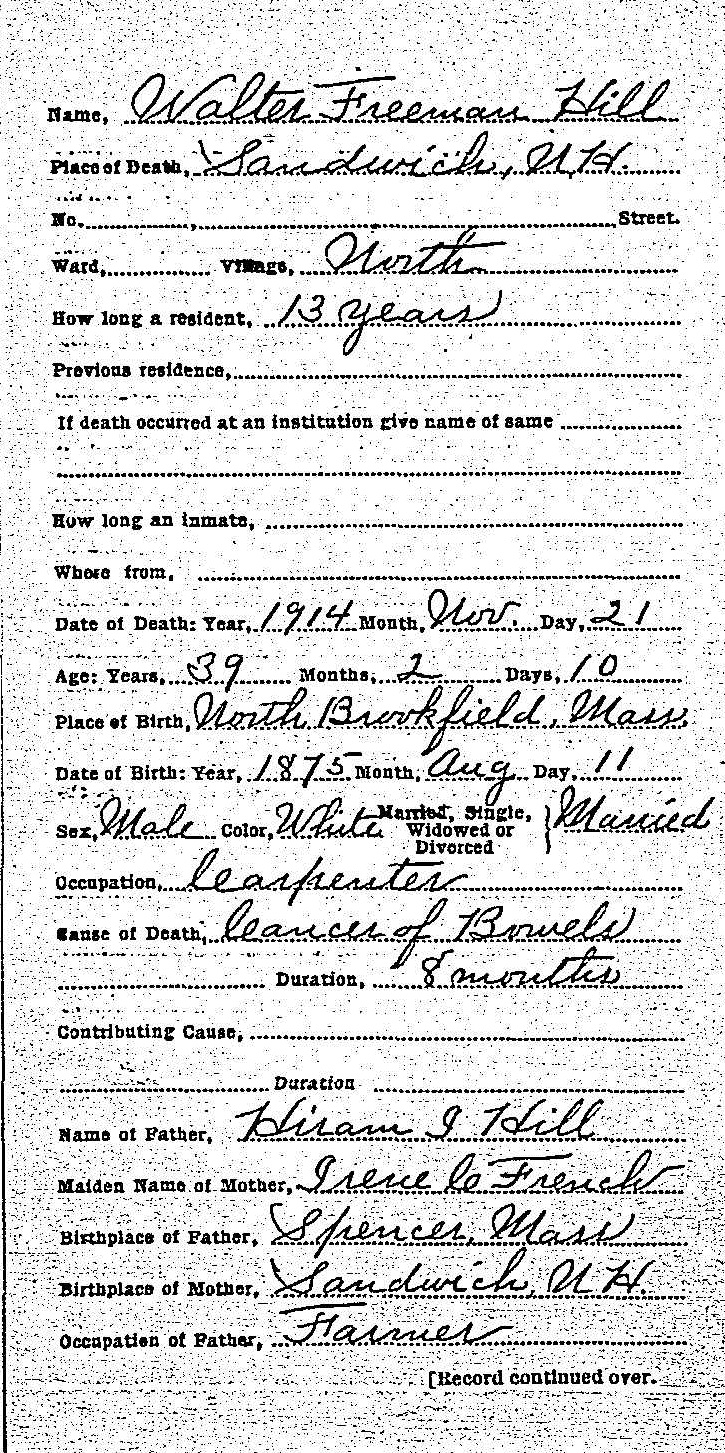 Name, Walter Freeman Hill
Place of Death, Sandwich, N.H.
No. , Street.
Ward, Village, North
How long a resident, 13 years
Previous residence,
If death occurred at an institution give name of same
How long an inmate,
Where from,
Date of Death: Year, 1914 Month, Nov. Day, 21
Age: Years, 39 Months, 2 Days, 10
Place of Birth, North Brookfield, Mass.
Date of Birth: Year, 1875 Month, Aug Day, 11
Sex, Male Color, White Married, Single, Widowed or Divorced } Married
Occupation, Carpenter
Cause of Death, Cancer of Bowels
Duration, 8 months
Contributing Cause,
Duration
Name of Father, Hiram I Hill
Maiden Name of Mother, Irene C French
Birthplace of Father, Spencer, Mass
Birthplace of Mother, Sandwich, N.H.
Occupation of Father, Farmer
[Record continued over.